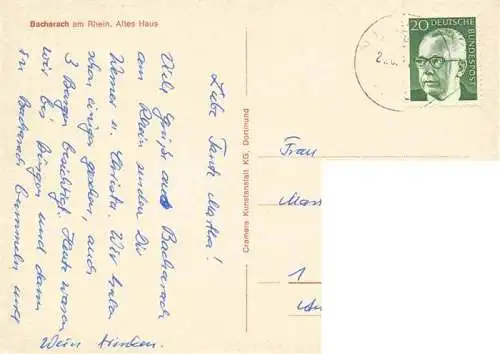 Bacharach am Rhein, Altes Haus
Liebe Tante Martha!
Viele Grüße aus Bacharach
am Rhein senden Dir
Werner u. Christa. Wir haben
schon einiges gesehen, auch
3 Burgen besichtigt. Heute waren
wir bis Bingen und dann
in Bacharach bummeln und
Wein trinken.
Cramers Kunstanstalt KG, Dortmund
20 DEUTSCHE BUNDESPOST
Frau
1